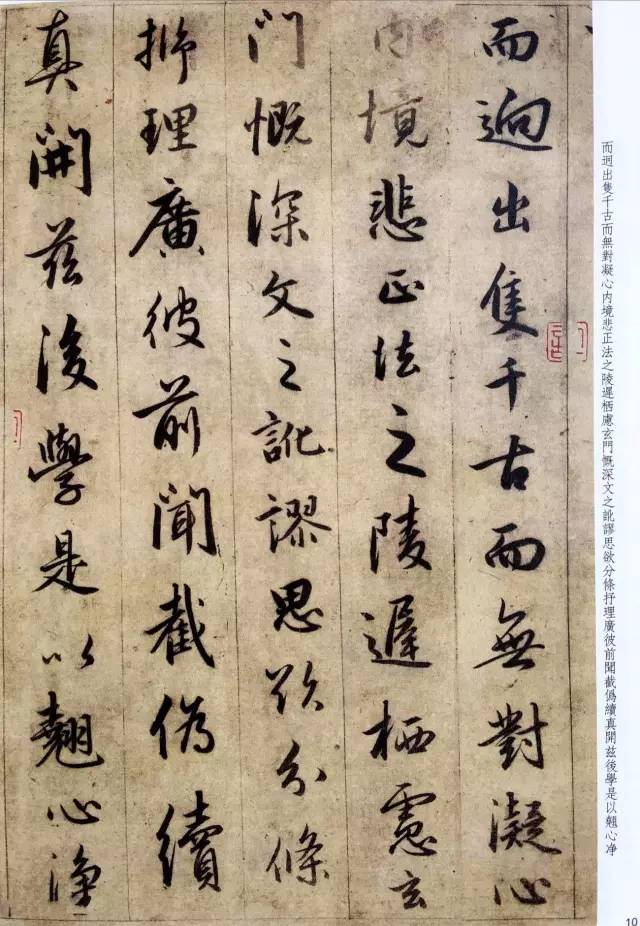 而迥出隻千古而無對凝心内境悲正法之陵遲栖慮玄門慨深文之訛謬思欲分條抒理廣彼前聞截僞續真開茲後學是以翹心净
而迥出隻千古而無對凝心
内境悲正法之陵遲栖慮玄
門慨深文之訛謬思欲分條
抒理廣彼前聞截僞續
真開茲後學是以翹心净
10